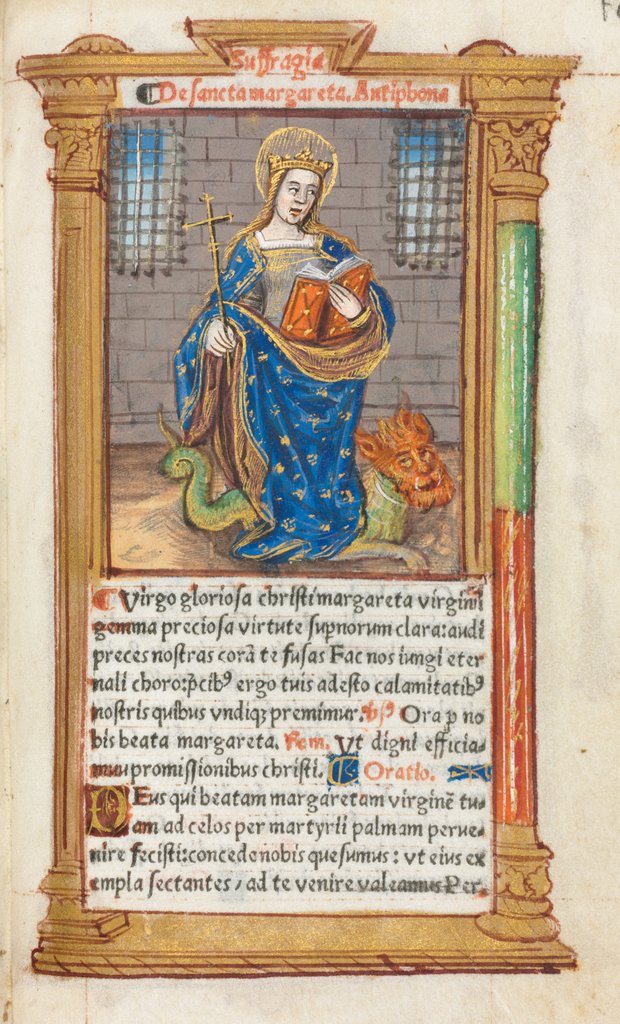 Suffragia
De sancta margareta. Antiphona
Virgo gloriosa christi margareta virginū
gemma preciosa virtute suꝑnorum clara: audi
preces nostras corā te fusas Fac nos iungi eter
nali choro: p̄cibꝰ ergo tuis adesto calamitatibꝰ
nostris quibus vndiqꝫ premimur. v̸s̸ Ora ꝓ no
bis beata margareta. Rem. Vt digni efficia⸗
mur promissionibus christi. Oratio.
DEus qui beatam margaretam virginē tu⸗
am ad celos per martyrii palmam perue⸗
nire fecisti: concede nobis quesumus: vt eius ex
empla sectantes / ad te venire valeamus Per.